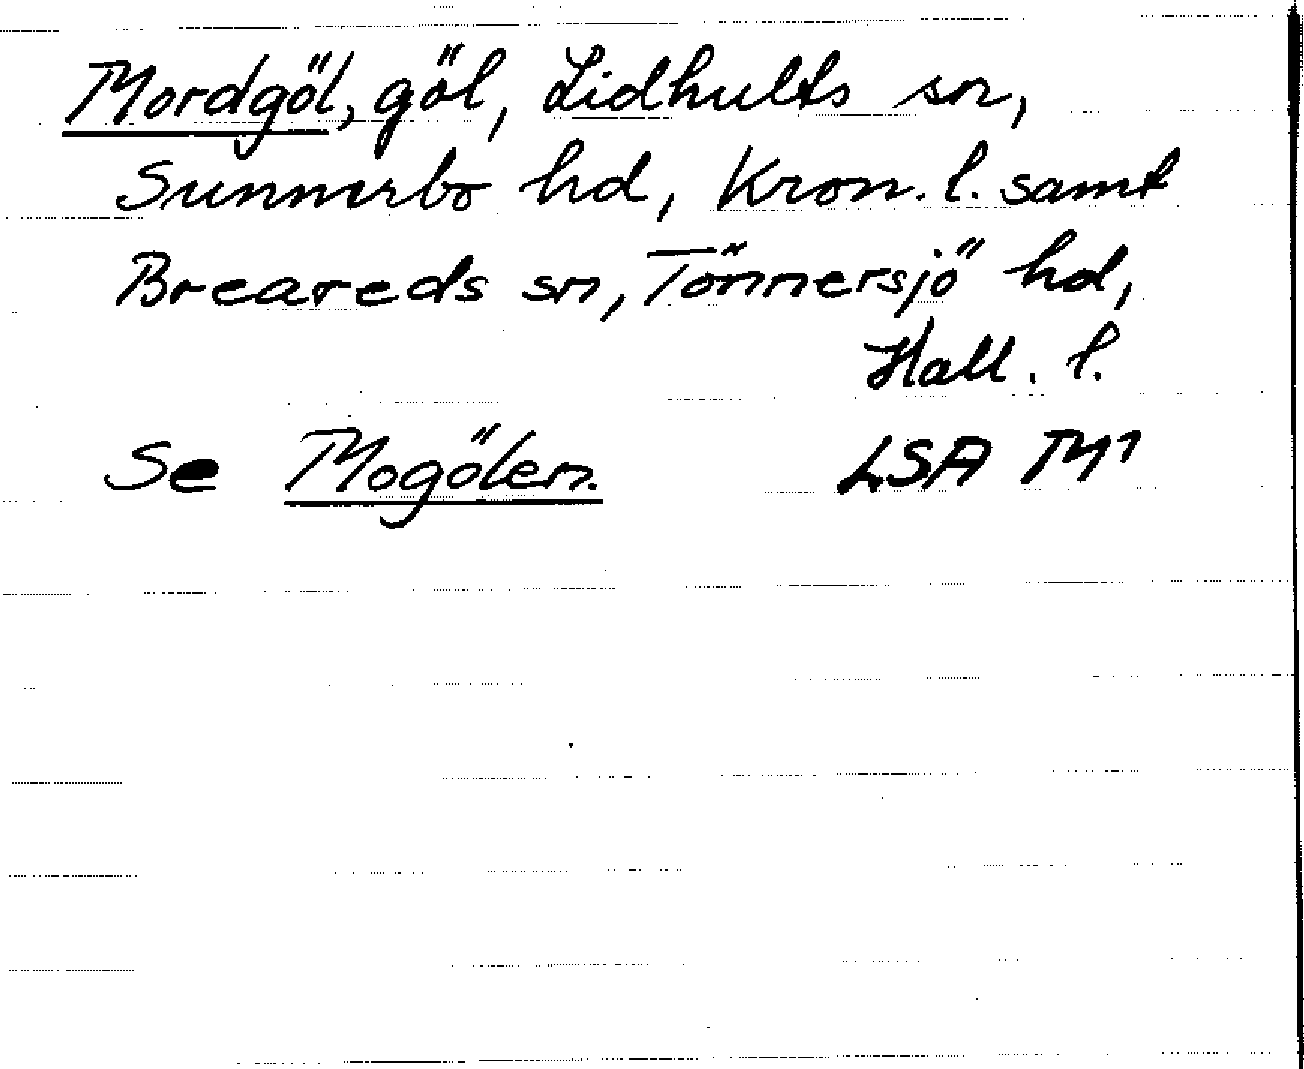 Mordgöl, göl, Lidhults sn,
Sunnerbo hd, Kron. l. samt
Breareds sn, Tönnersjö hd,
Hall. l.
Se Mogölen. LSA M1